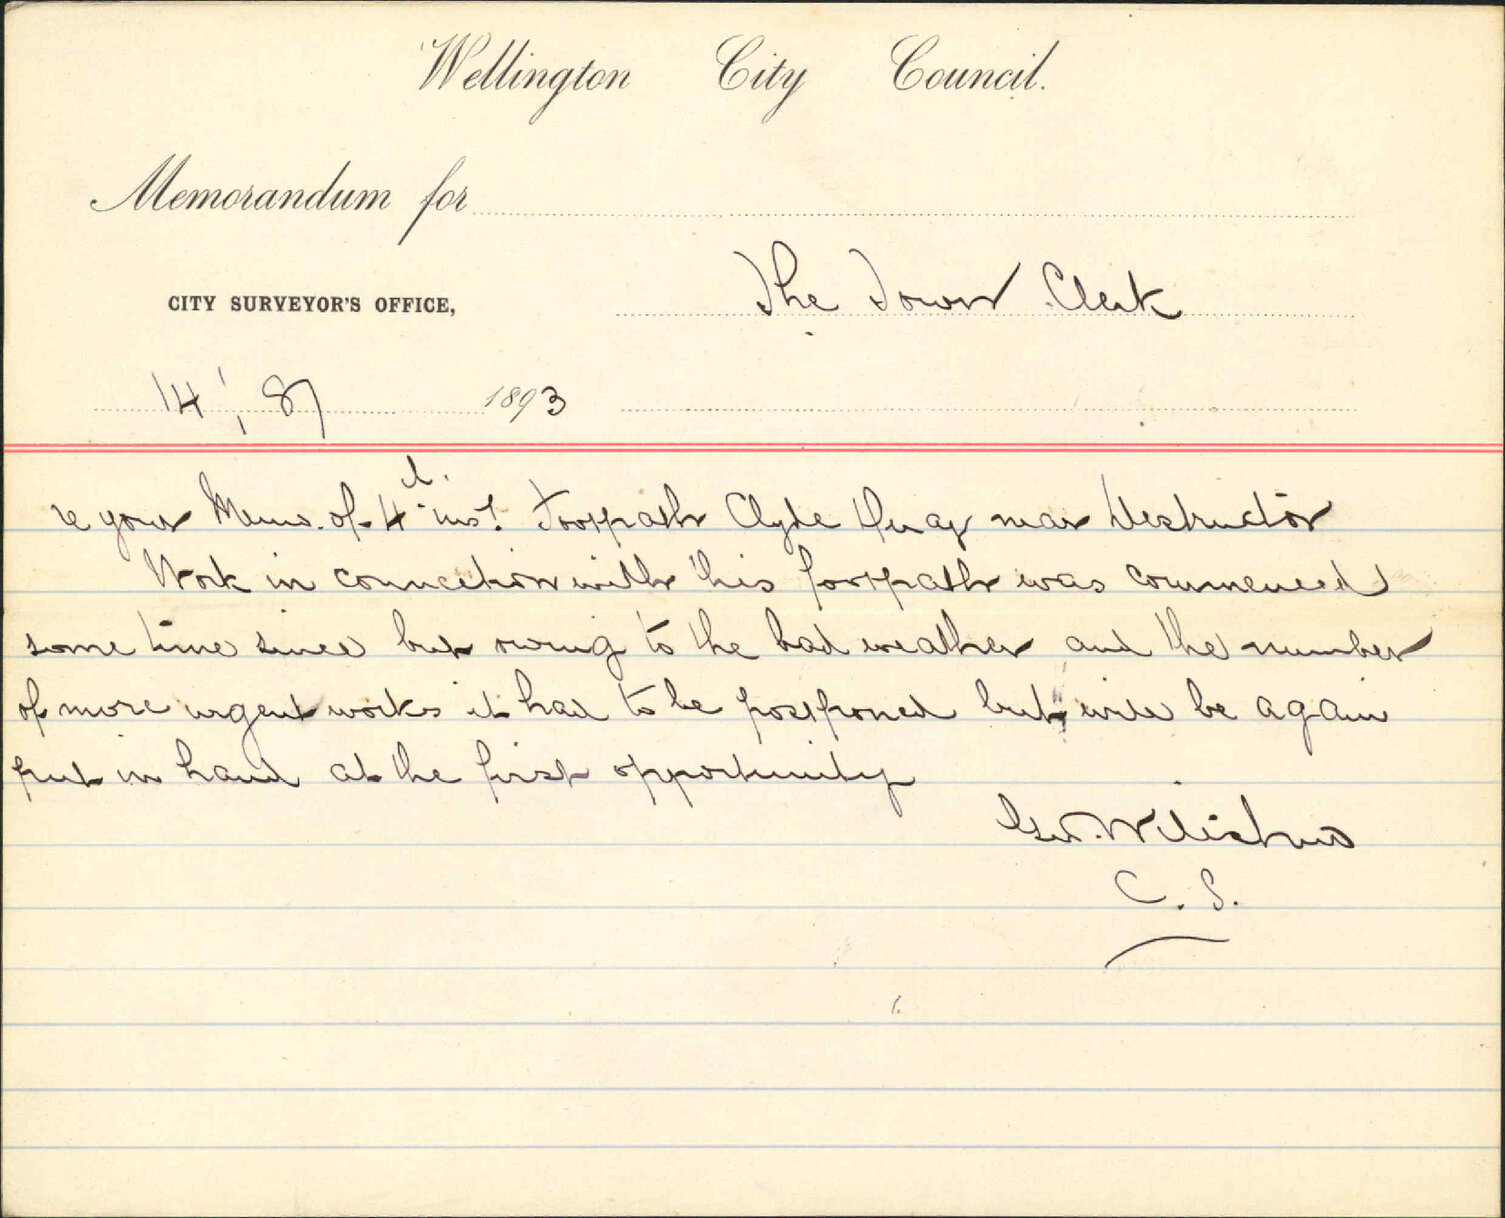 Wellington City Council.
Memorandum for
The Town Clerk
CITY SURVEYOR'S OFFICE,
14/8/ 1893
re your Memo. of 4th inst. Footpath Clyde Quay near Destructor
Work in connection with this footpath was commenced
some time since but owing to the bad weather and the number
of more urgent works it had to be postponed but will be again
put in hand at the first opportunity
Geo. Wiltshire
C. S.